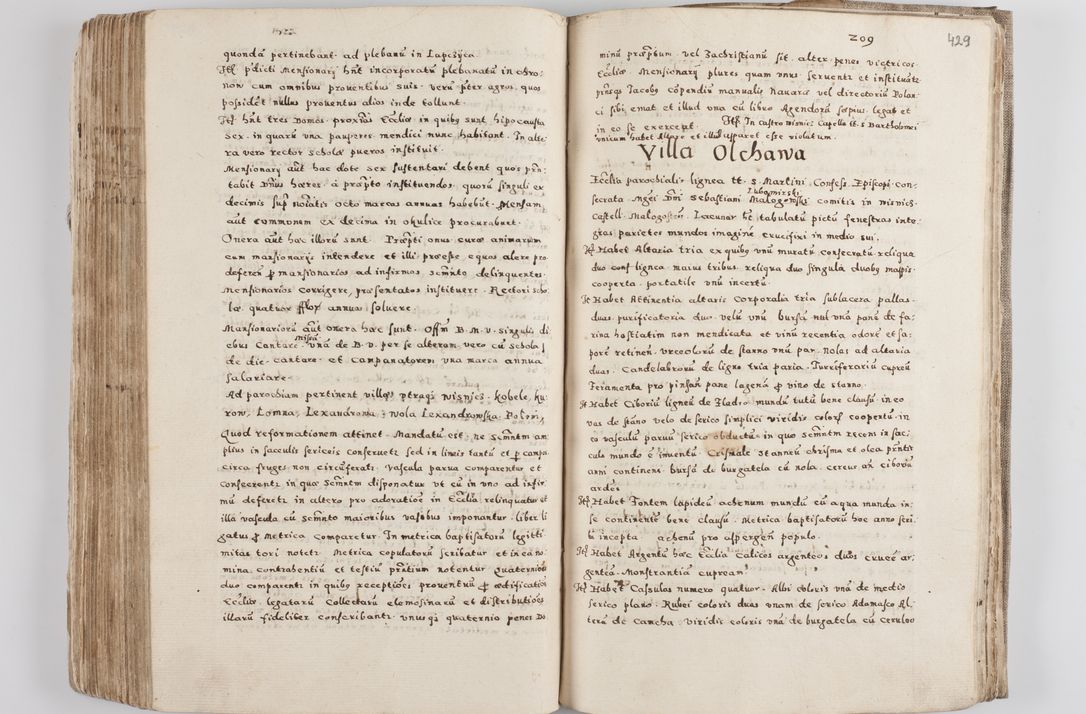 quondã pertinebant ad plebanũ in Lapczÿca
Itẽ p̃dicti Mensionarij hñt incorporatũ plebanatũ in Chro-
now cum omnibus prouentibus suis. verũ p̃ter agros quos
possidẽt nullus prouentus alios inde tollunt.
Itẽ hñt tres Domos proprias Ecclĩæ in quibȝ sunt hipocausta
sex. in quarũ vna pauperes mendici nunc habitant. In alte
ra vero rector scholæ pueros instituit.
Mensionarij aũt hac dote sex sustentari debent quos prñ-
tabit Dñus hæres. à præpto instituendos quorũ singuli ex
decimis sup̃ notatis octo marcas annuas habebũt. Mensam
aũt communem ex decima in okulice procurabunt.
Onera aũt hæc illorũ sunt. Præpti onus curæ animarum
cum mansionarijs intendere et illi præesse equos alere pro
deferen̄ p mansionarios ad infirmos semñto delinquentes
Mensionarios corrigere, præsentatos instituere. Rectori scho
læ quatuor fflor annuos soluere.
Mansionariorũ aũt onera hæc sunt. Offm̃ B. M. V. singulis di
ebus Cantare. missã vnã de B. V. per se alteram vero cũ schola
de die. cantare et Campanatorem vna marca annua
salariare.
Ad parochiam pertinent villæ, vtraqȝ Wisnicz. Kobele, Ku
row, Lomna, Lexandrowa, Wola Lexandrowska Polom,
Quod reformationem attinet. Mandatũ est, ne Semñtm am
plius in sacculis sericeis conseruetᵣ sed in lineis tantũ et p campa
circa fruges non circũferatᵣ. Vascula parua comparentur et
conseerentᵣ in quæ Semñtm disponatur vt cũ in vno ad infir
mũ deferetᵣ in altero pro adoratiõe in Ecclĩa relinquatur et
illa vascula cũ semñto maioribus vasibus imponantur. Liber li
gatus p Metrica comparetur. In metrica baptisatorũ legitti
mitas tori notetᵣ. Metrica copulatorũ scribatur et in ea no-
mina contrahentiũ et testiũ p̃ntium notentur. Quaterniões
duo comparentᵣ in quibȝ receptiões prouentuũ p ædificatiõe
Ecclĩæ, legatorũ Collectarũ elemosinarũ et distributiões
illarũ fideliter conscribantᵣ. vnus qȝ quaternio penes Do
209
429
minũ præptum vel Zachristianũ sit. alter penes victricos
Ecclĩæ. Mensionarij plures quam vnus seruentᵣ et instituātᵣ
p̃nsqȝ Jacobȝ Cõpendiũ manualis Nauarri vel directoriũ Polan
ci sibi emat et illud vna cũ libro Agendorũ sæpius legat et
in eo se exerceat. Itẽ In castro Wisnicz Capella tt. s Bartholomei
vnicum habet Altare et illud apparet esse violatum.
Villa Olchawa
Ecclĩa parochialis lignea tt. s. Martini Confess. Episcopi con-
secrata Mgci Dñi Sebastiani Lubomirski Malogowski comitis in Wisnicz
Castell. Malogosteñ. Lacunar hẽ tabulatũ pictũ fenestras inte-
gras parietes mundos imaginẽ crucifixi in medio sui.
Itẽ Habet Altaria tria ex quibȝ vnũ muratũ consecratũ reliqua
duo conf lignea maius tribus reliqua duo singula duobȝ mappis
cooperta. portatile vnũ incertũ.
Itẽ Habet Attinentia altaris Corporalia tria sublacera pallas
duas purificatoria duo velũ vnũ bursã nul vnã ponẽ de fa-
rina hostiatim non mendicata et vinũ recentia odorẽ et sa-
porẽ retineñ. Vrceolorũ de stanno vnũ par. Nolas ad altaria
duas. Candelabrorũ de ligno tria paria. Turriferariũ cupreũ
Feramenta pro pinsañ pane lagenã p vino de stanno.
Itẽ Habet Ciboriũ ligneũ de Eladro mundũ tutũ bene clausũ in eo
vas de stãno velo de serico simplici viridis colorȝ coopertũ in
eo vasculũ paruũ serico obductũ in quo semñtm recens in sac
culo mundo ẽ inuentũ. Crismale stanneũ chrisma et olea p̃ntis
anni continens bursã de burgatela cũ nola. cereus añ ciboriũ
ardẽs
Itẽ Habet Fontem lapideũ aehenum mundũ cũ aqua munda in-
se continente bene clausũ. Metrica baptisatorũ hoc anno seri
ũ incepta aehenũ pro aspergeñ populo.
Itẽ Habet Argentũ hæc Ecclĩa Calices argenteos duos crucẽ ar-
genteã. Monstrantiã cupream
Itẽ Habet Casulas numero quatuor. Albi coloris vnã de medio
serico plano. Rubei coloris duas vnam de serico Adamasco Al-
terã de Camcha. viridis coloris vnã de burgatela cũ ceruleo